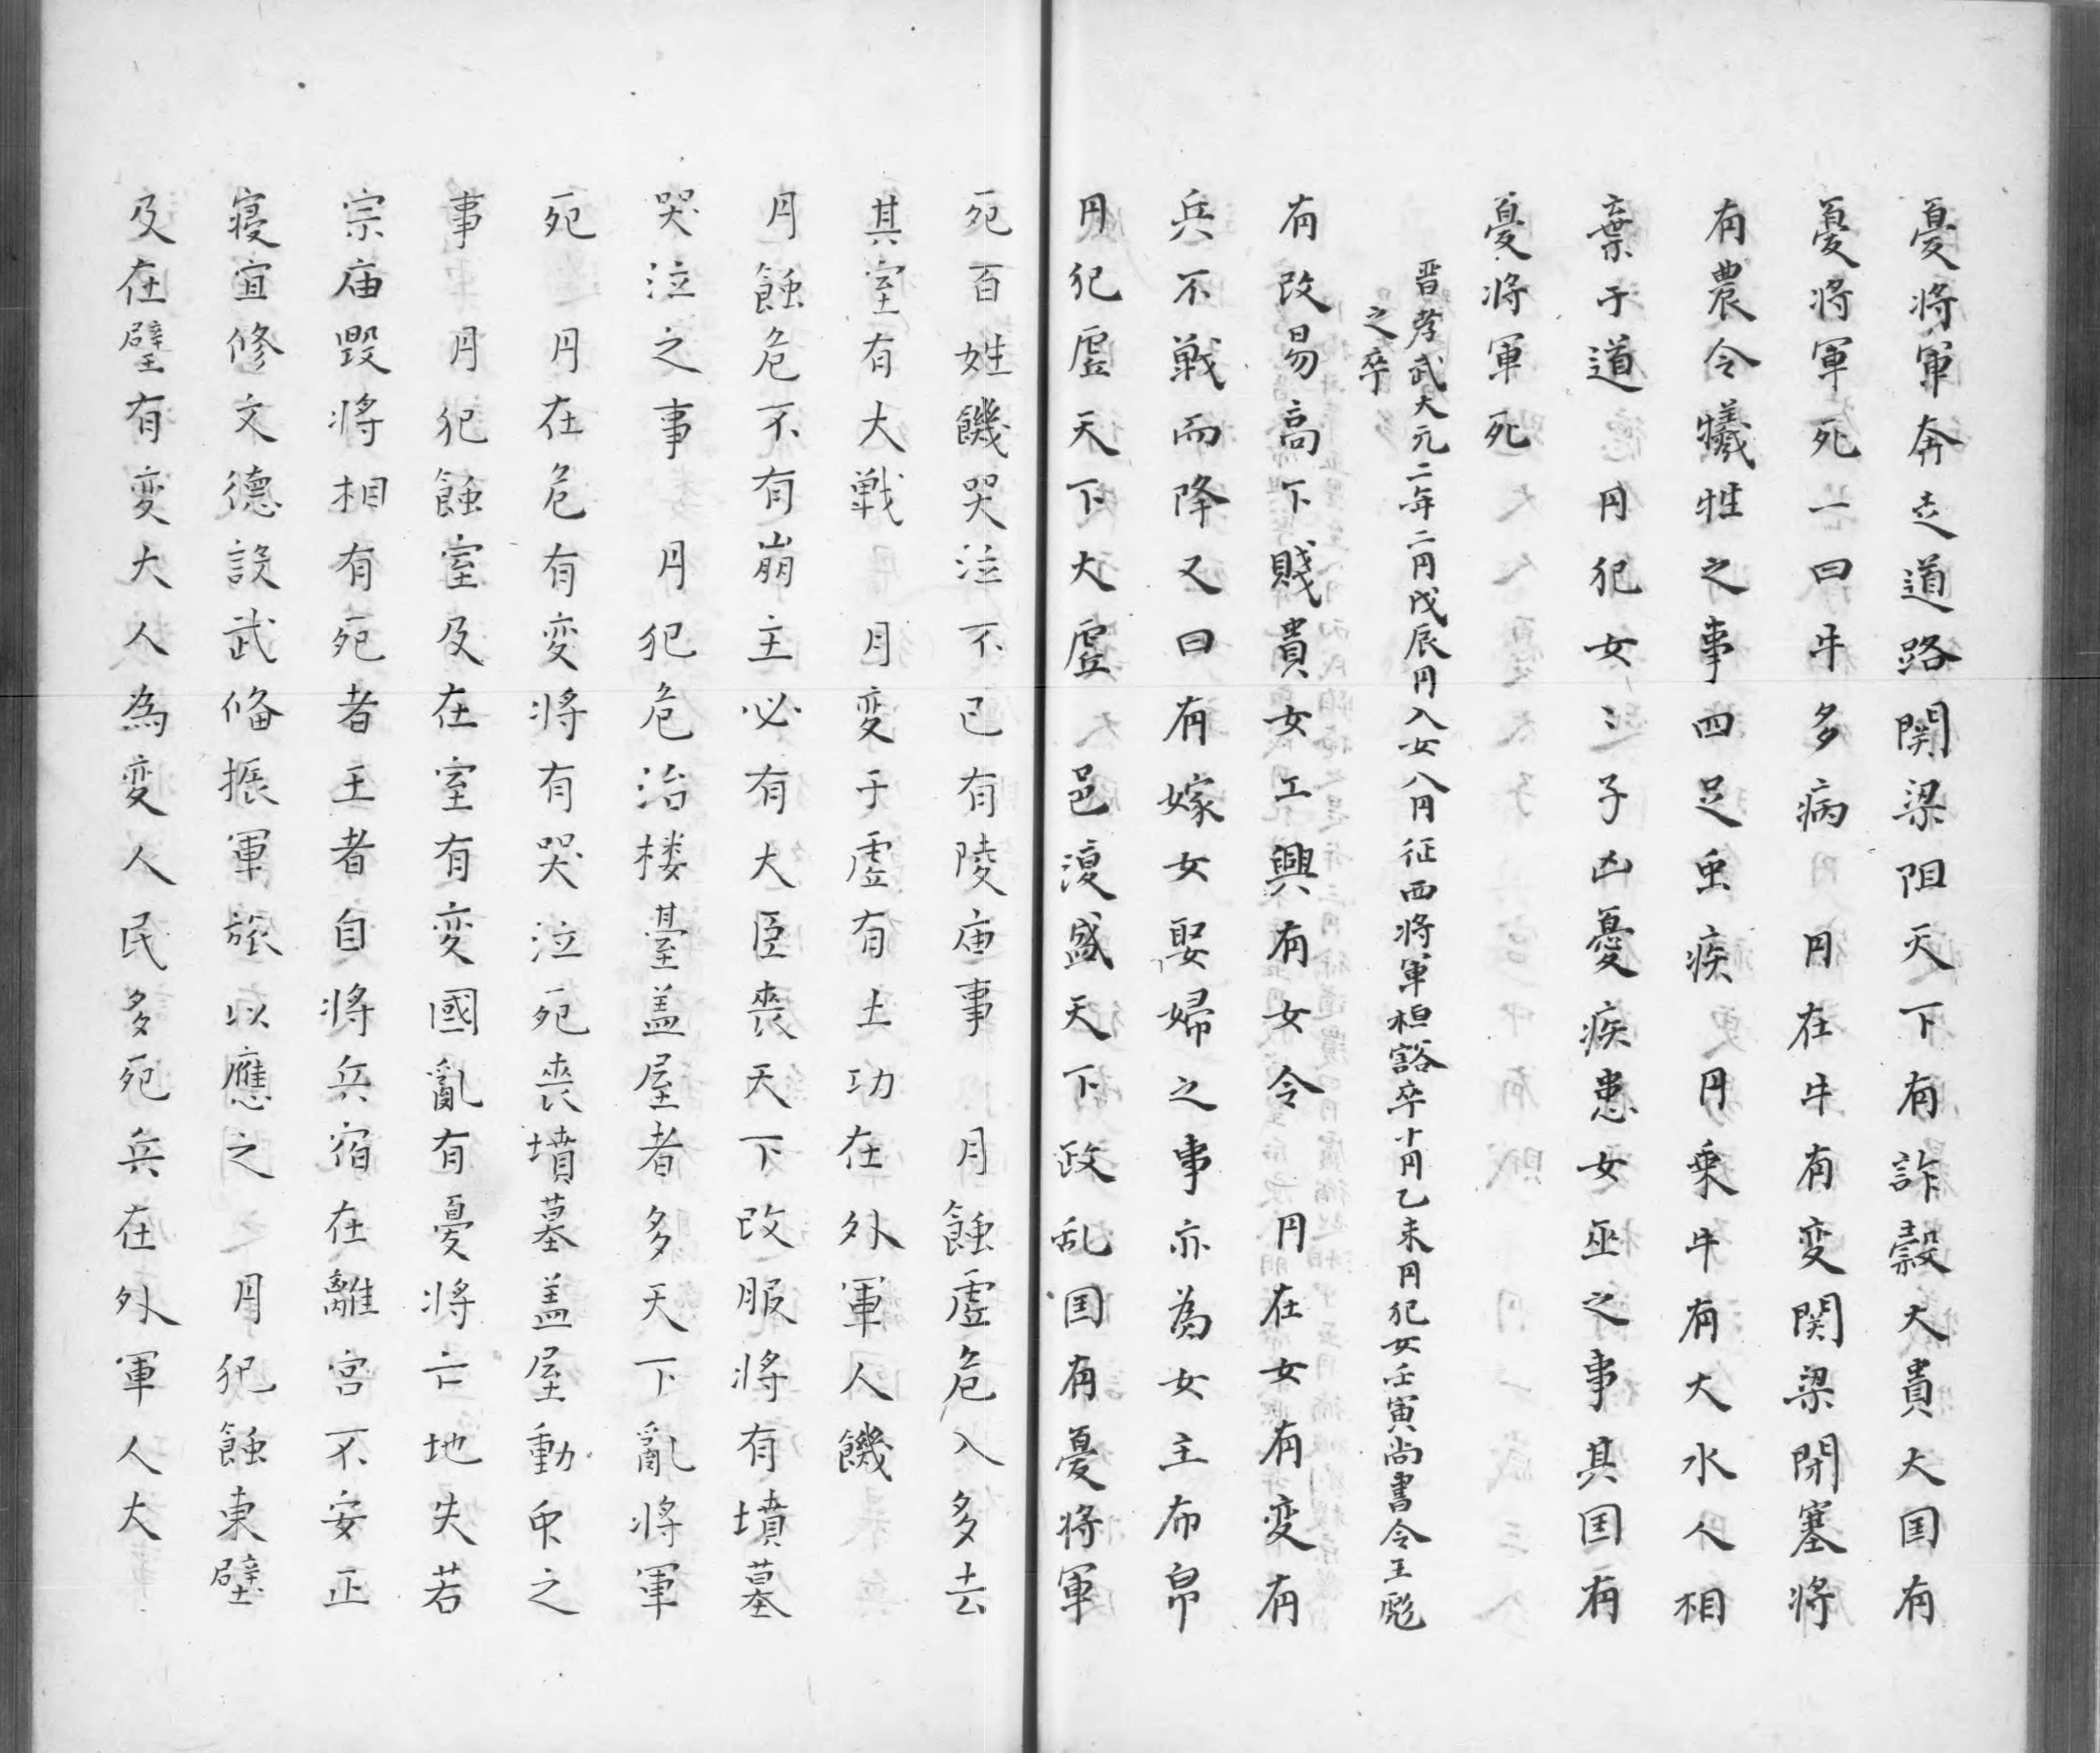 憂将軍奔走道路関梁阻天下有詐穀大貴大国有
憂将軍死一曰牛多病 月在牛有変関梁閉塞将
有農令犠牲之事四足虫疾 月乗牛有大水人相
棄于道 月犯女〻子凶憂疾患女巫之事其国有
憂将軍死
晋孝武大元二年二月戊辰月入女八月征西将軍桓豁卒十月乙未月犯女壬寅尚書令王彪
之卒
有改易高下賤貴女工興有女令 月在女有変有
兵不戦而降又曰有嫁女娶婦之事亦為女主布帛
月犯虚天下大虚邑復盛天下政乱国有憂将軍
死百姓饑哭泣不已有陵庙事 月蝕虚危入多去
其室有大戦 月変于虚有土功在外軍人饑
月蝕危不有崩主必有大臣喪天下改服将有墳墓
哭泣之事 月犯危治楼臺盖屋者多天下亂将軍
死 月在危有変将有哭泣死喪墳墓盖屋動之
事 月犯蝕室及在室有変國亂有憂将亡地失若
宗庙毀将相有死者王者自将兵宿在離宮不安正
寝宜修文德設武俻振軍旅以應之 月犯蝕東壁
及在壁有変大人為変人民多死兵在外軍人大